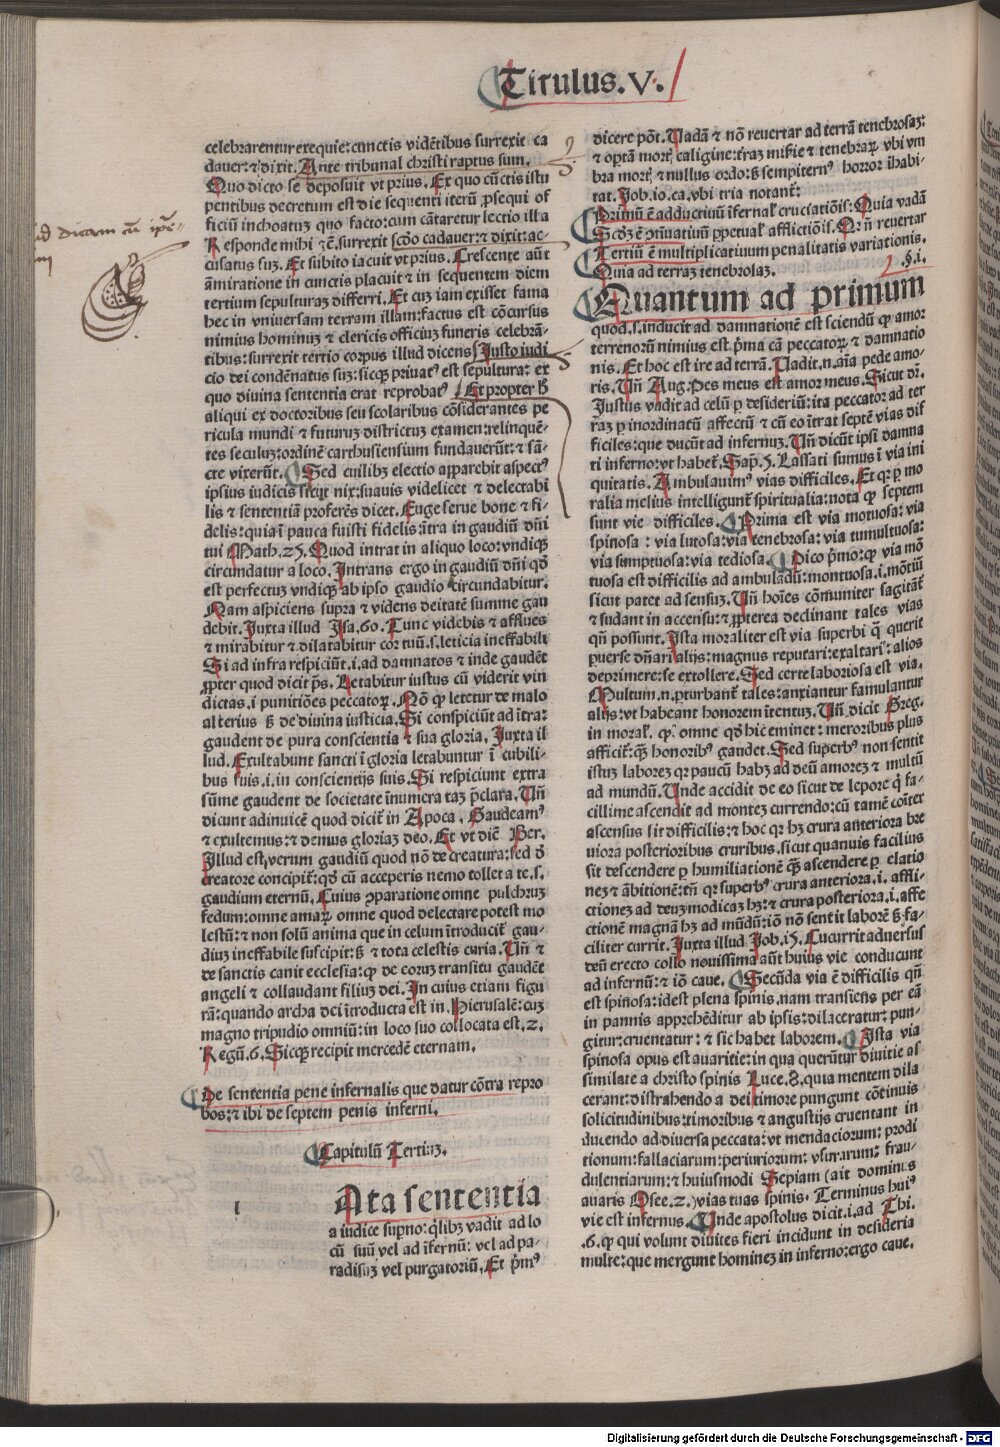 Titulus.V.
celebrarentur exequie: cunctis vidētibus surrexit ca
dauer: ⁊ dixit. Ante tribunal christi raptus sum.
Quo dicto se deposuit vt prius. Ex quo cūctis istu
pentibus decretum est die sequenti iterū ꝓsequi of
ficiū inchoatuꝫ quo facto: cum cātaretur lectio illa
Responde mihi ⁊ċ. surrexit scdo cadauer: ⁊ dixit: ac-
cusatus suꝫ. Et subito iacuit vt prius. Crescente aūt
āmiratione in cunctis placuit ⁊ in sequentem diem
tertium sepulturaꝫ differri. Et cuꝫ iam exisset fama
hec in vniuersam terram illam: factus est cōcursus
nimius hominuꝫ ⁊ clericis officiuꝫ funeris celebrā-
tibus: surrexit tertio corpus illud dicens Justo iudi
cio dei condēnatus suꝫ: sicqꝫ priuatꝰ est sepultura: ex
quo diuina sententia erat reprobatꝰ Et propter ħ
aliqui ex doctoribus seu scolaribus cōsiderantes pe
ricula mundi ⁊ futuruꝫ districtuꝫ examen: relinquē-
tes seculuꝫ: ordinē carthusiensium fundauerūt: ⁊ sā-
cte vixerūt. Sed cuilibꝫ electio apparebit aspectꝰ
ipsius iudicis sicut nix: suauis videlicet ⁊ delectabi
lis ⁊ sententiā proferēs dicet. Euge serue bone ⁊ fi-
delis: quia ī pauca fuisti fidelis: ītra in gaudiū dn̄i
tui Math.25. Quod intrat in aliquo loco: vndiqꝫ
circundatur a loco. Intrans ergo in gaudiū dn̄i qđ
est perfectuꝫ vndiqꝫ ab ipso gaudio circundabitur.
Nam aspiciens supra ⁊ videns deitatē summe gau
debit. Juxta illud Isa.60. Tunc videbis ⁊ afflues
⁊ mirabitur ⁊ dilatabitur cor tuū.s.leticia ineffabili
Si ad infra respiciūt.i.ad damnatos ⁊ inde gaudēt
ꝓpter quod dicit ps̄. Letabitur iustus cū viderit vin
dictas.i punitiōes peccatoꝝ. Nō ꝙ letetur de malo
alterius ꝫ de diuina iusticia. Si conspiciūt ad ītra:
gaudent de pura conscientia ⁊ sua gloria. Juxta il
lud. Exultabunt sancti ī gloria letabuntur ī cubili-
bus suis.i.in conscientijs suis. Si respiciunt extra
sūme gaudent de societate īnumera taꝫ p̄clara. Vn̄
dicunt adinuicē quod dicit̄ in Apoca. Gaudeamꝰ
⁊ exultemus: ⁊ demus gloriaꝫ deo. Et vt dic̄ Ber.
Illud est, verum gaudiū quod nō de creatura: sed đ
creatore concipit̄: qđ cū acceperis nemo tollet a te.s.
gaudium eternū. Cuius ꝯparatione omne pulchruꝫ
fedum: omne amaꝝ omne quod delectare potest mo
lestū: ⁊ non solū anima que in celum introducit̄ gau-
diuꝫ ineffabile suscipit: ꝫ ⁊ tota celestis curia. Vn̄ ⁊
de sanctis canit ecclesia: ꝙ de coruꝫ transitu gaudēt
angeli ⁊ collaudant filiuꝫ dei. In cuius etiam figu
rā: quando archa dei ītroducta est in. Hierusalē: cuꝫ
magno tripudio omniū: in loco suo collocata est.2.
Regū.6. Sicqꝫ recipit mercedē eternam.
De sententia pene infernalis que datur cōtra repro
bos: ⁊ ibi de septem penis inferni.
Capitulū Tertiuꝫ.
l
Ata sententia
a iudice supno: qlibꝫ vadit ad lo
cū suū vel ad īfernū: vel ad pa-
radisuꝫ vel purgatoriū. Et p̄mꝰ
dicere pōt. Uadā ⁊ nō reuertar ad terrā tenebrosaꝫ:
⁊ optā mort̄ caligine: traꝫ miſie ⁊ tenebraꝝ vbi vm
bra mort̄ ⁊ nullus ordo: ꝫ sempiternꝰ horror ihabi-
tat. Job.io.ca.vbi tria notant̄:
Primū ē adductiuū īfernaƚ cruciatiōis: Quia vadā
Scđꝫ ē ꝯtinuatiuū ꝑpetuaƚ afflictiōis. Qr n̄ reuertar
Tertiū ē multiplicatiuum penalitatis variationis.
Quia ad terraꝫ tenebrosaꝫ. §.i.
Quantum ad primum
quod.s.inducit ad damnationē est sciendū ꝙ amor
terrenorū nimius est p̄ma cā peccatoꝝ ⁊ damnatio
nis. Et hoc est ire ad terrā. Uadit.n.aīa pede amo-
ris. Vn̄ Aug. Pes meus est amor meus. Sicut .n.
Justus vadit ad celū ꝑ desideriū: ita peccator ad ter
raꝫ ꝑ inordinatū affectū ⁊ cū eo ītrat septē vias dif
ficiles: que ducūt ad infernuꝫ. Vn̄ dicūt ipsi damna
ti inferno: vt habet̄. Sap.5. Lassati sumus ī via ini
quitatis. Ambulauimꝰ vias difficiles. Et qꝛ ꝑ mo
ralia melius intelligunt̄ spiritualia: nota ꝙ septem
sunt vie difficiles. Prima est via motuosa: via
spinosa: via lutosa: via tenebrosa: via tumultuosa:
via sumptuosa: via tediosa. Dico p̄mo: ꝙ via mō
tuosa est difficilis ad ambulādū: montuosa.i.mōtiū
sicut patet ad sensuꝫ. Vn̄ hoīes cōmuniter sagitāt̄
⁊ sudant in accensu: ⁊ ꝓpterea declinant tales vias
qn̄ possunt. Ista moraliter est via superbi q̄ querit
ꝑuerse dn̄ari alijs: magnus reputari: exaltari: alios
deprimere: se extollere. Sed certe laboriosa est via.
Multum.n.ꝑturbant̄ tales: anxiantur famulantur
alijs: vt habeant honorem ītentuꝫ. Vn̄ dicit Greg.
in moraƚ. ꝙ. omne qđ hic eminet: meroribus plus
afficit̄: qꝫ honoribꝰ gaudet. Sed superbꝰ non sentit
istuꝫ laboreꝫ qꝛ paucū habꝫ ad deū amoreꝫ ⁊ multū
ad mundū. Unde accidit de eo sicut de lepore q̄ fa-
cillime ascendit ad monteꝫ currendo: cū tamē cōiter
ascensus sit difficilis: ⁊ hoc qꝛ hꝫ crura anteriora bre
uiora posterioribus cruribus. sicut quanuis facilius
sit descendere ꝑ humiliationē qꝫ ascendere ꝑ elatio
neꝫ ⁊ ābitionē: tn̄ qꝛ superbꝰ crura anteriora.i. affli-
ctioneꝫ ad deuꝫ modicaꝫ hꝫ: ⁊ crura posteriora.i.affe
ctionē magnā hꝫ ad mūdū: iō nō sentit laborē ꝫ fa-
ciliter currit. Juxta illud Job.i5. Cucurrit aduersus
deū erecto collo nouissima aūt huius vie conducunt
ad infernū: ⁊ iō caue. Secūda via ē difficilis qn̄
est spinosa: idest plena spinis. nam transiens per eā
in pannis apprehēditur ab ipsis: dilaceratur: pun-
gitur: cruentatur: ⁊ sic habet laborem. Ista via
spinosa opus est auaritie: in qua querūtur diuitie as
similate a christo spinis Luce.8. quia mentem dila
cerant: distrahendo a dei timore pungunt cōtinuis
solicitudinibus: timoribus ⁊ angustijs cruentant in
ducendo ad diuersa peccata: vt mendaciorum: prodi
tionum: fallaciarum: periuriorum: vsurarum: frau-
dulentiarum: ⁊ huiusmodi Sepiam (ait dominus
auaris Osee.2.) vias tuas spinis. Terminus huiꝰ
vie est infernus. Unde apostolus dicit.i.ad Thi.
.6. ꝙ qui volunt diuites fieri incidunt in desideria
multe: que mergunt homineꝫ in inferno: ergo caue.
Digitalisierung gefördert durch die Deutsche Forschungsgemeinschaft - DFG